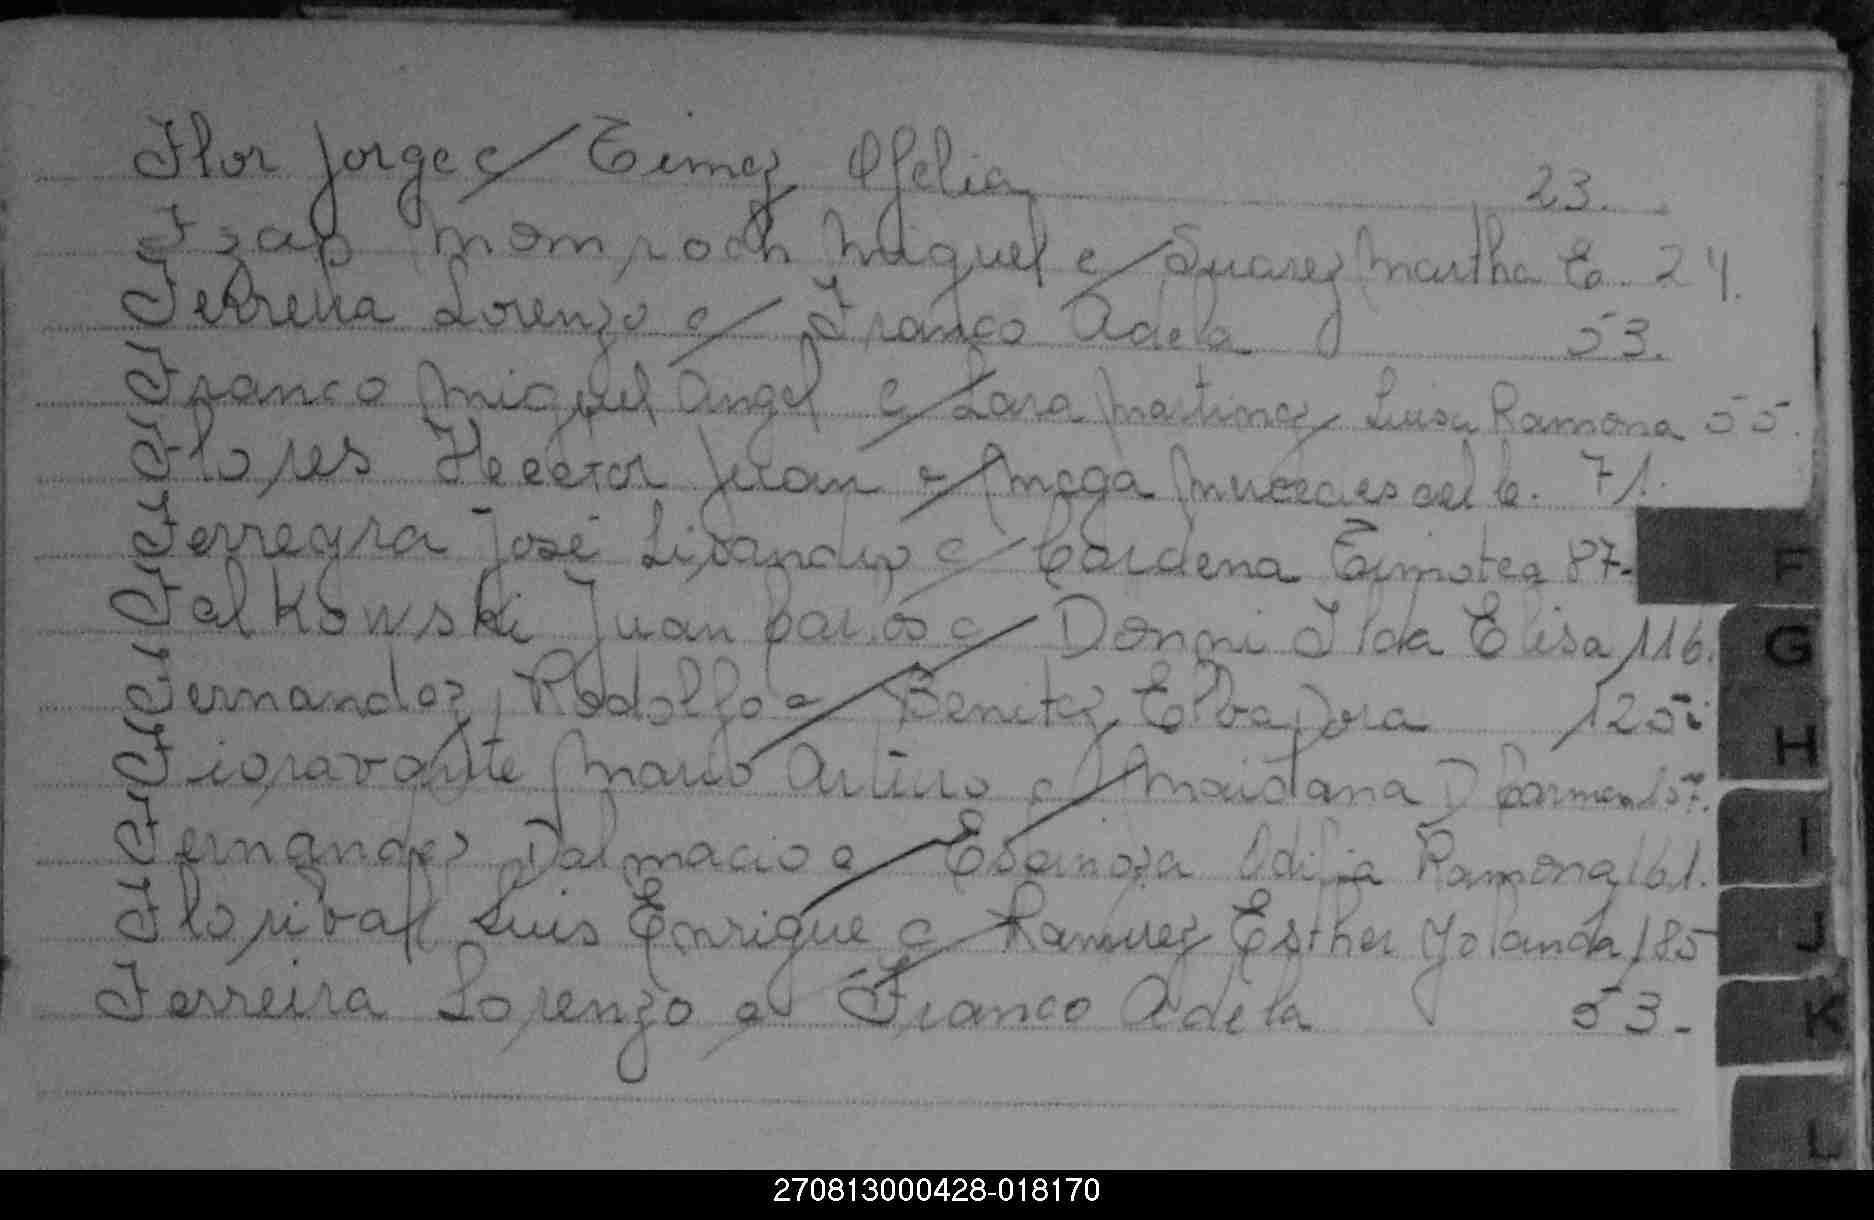 Flor Jorge c/ Eimez Ofelia 23.
Miguel c/ Suarez Martha E. 24.
Ferreira Lorenzo c/ Franco Adela 53.
Franco Miguel Angel c/ Lara Martinez Luisa Ramona 55.
Flores Hector Juan c/ Amega Mercedes del C. 71.
Ferreyra José Lisandro c/ Cardena Timotea 87-
Felkowski Juan Carlos c/ Donni Ilda Elisa 116.
Fernandez Rodolfo c/ Benitez Elba Dora 125.
Fioravante Mario Arturo c/ Maidana D Carmen 157.
Fernandez Dalmacio c/ Espinoza Odilia Ramona 161.
Florival Luis Enrique c/ Ramirez Esther Yolanda 185
Ferreira Lorenzo c/ Franco Adela 53-
F
G
H
I
J
K
L
270813000428-018170